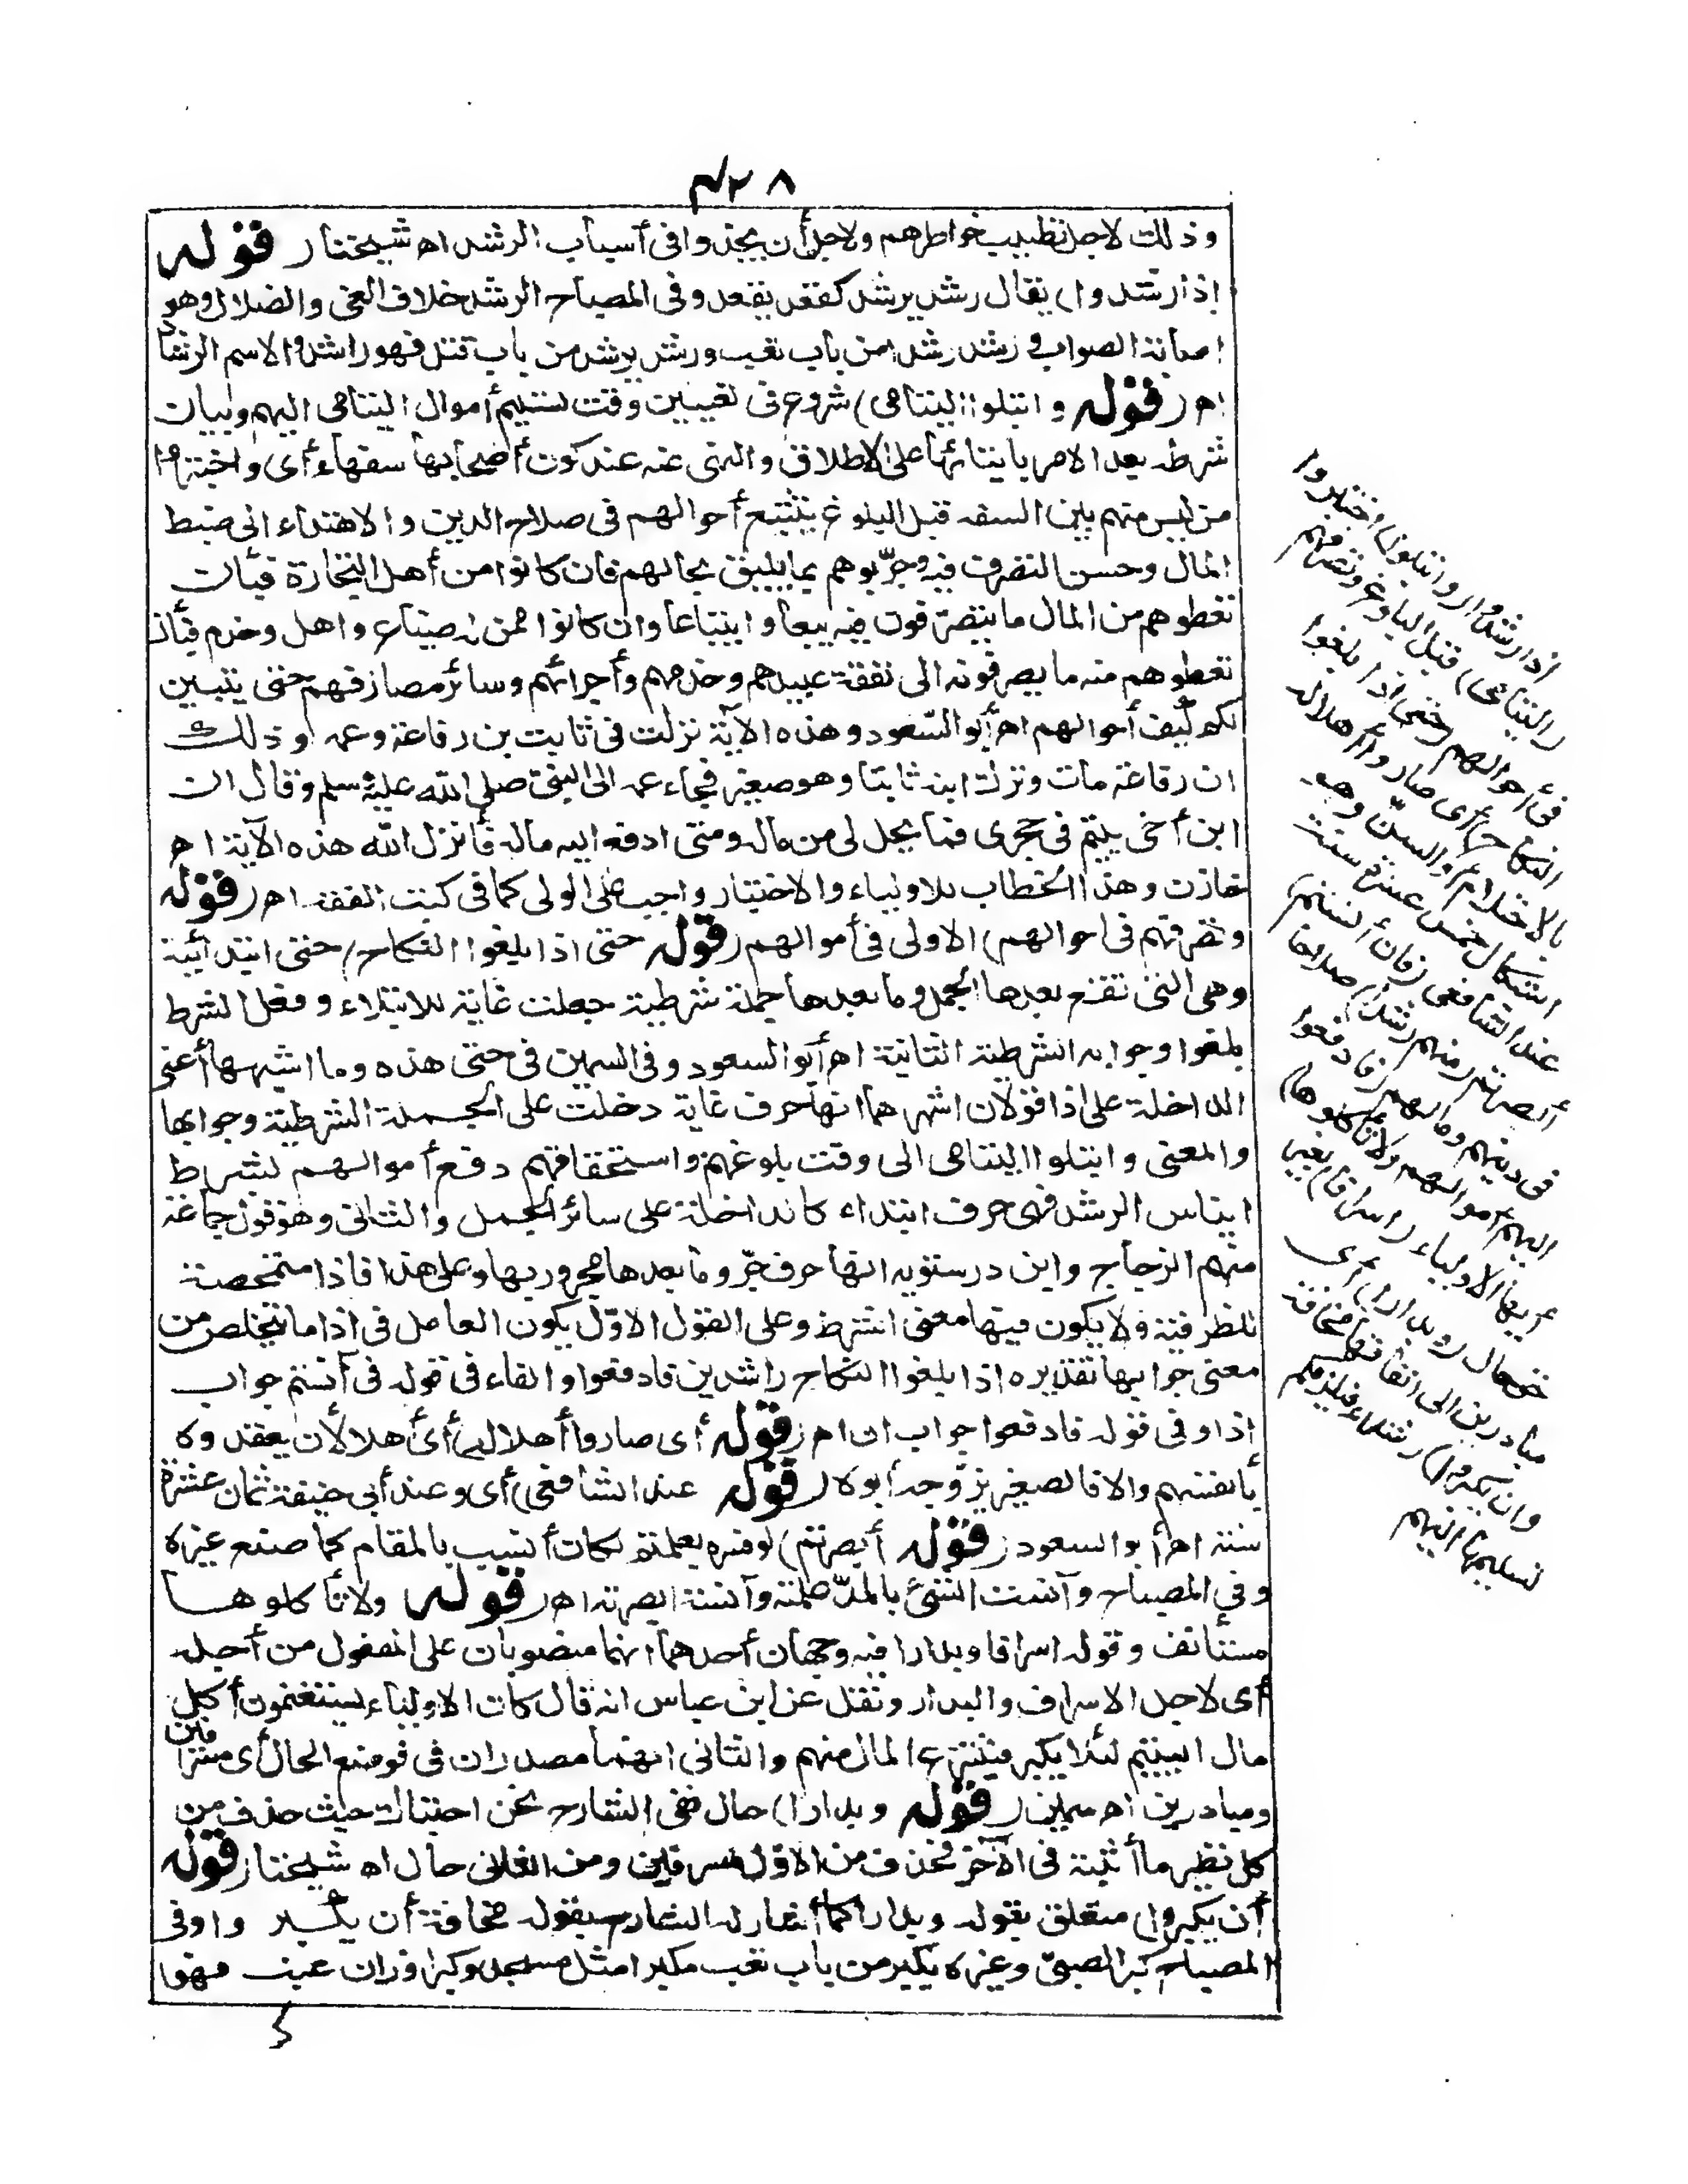 ٤٢٨
وذلك لاجل تطييب خواطرهم ولاجل أن يجدوا فى أسباب الرشد اه شيخنا (قوله
اذا رشدوا) يقال رشد يرشد كقعد يقعد وفى المصباح الرشد خلاف الغى والضلال وهو
اصابة الصواب ورشد رشدا من باب تعب ورشد يرشد من باب قتل فهو راشد والاسم الرشاد
اه (قوله وابتلوا اليتامى) شروع فى تعيين وقت تسليم أموال اليتامى اليهم وبيان
شرطه بعد الامر بايتائها على الاطلاق والنهى عنه عند كون أصحابها سفهاء أى واختبروا
من ليس منهم بين السفه قبل البلوغ بتتبع أحوالهم فى صلاح الدين والاهتداء الى ضبط
المال وحسن التصرف فيه وجرّبوهم بما يليق بحالهم فان كانوا من أهل التجارة فبأن
تعطوهم من المال ما يتصرّفون فيه بيعا وابتياعا وان كانوا ممن له ضياع واهل وخدم فبأن
تعطوهم منه ما يصرفونه الى نفقة عبيدهم وخدمهم وأجرائهم وسائر مصارفهم حتى يتبين
لكم كيف أحوالهم اه أبو السعود وهذه الآية نزلت فى ثابت بن رفاعة وعمه وذلك
ان رفاعة مات وترك ابنه ثابتا وهو صغير فجاء عمه الى النبى صلى الله عليه وسلم وقال ان
ابن أخى يتيم فى حجرى فما يحل لى من ماله ومتى ادفع اليه ماله فأنزل الله هذه الآية اه
خازن وهذا الخطاب للاولياء والاختبار واجب على الولى كما فى كتب الفقه اه (قوله
وتصرفهم فى احوالهم) الاولى فى أموالهم (قوله حتى اذا بلغوا النكاح) حتى ابتدائية
وهى التى تقع بعدها الجمل وما بعدها جملة شرطية جعلت غاية للابتلاء وفعل الشرط
بلغوا وجوابه الشرطية الثانية اه أبو السعود وفى السمين فى حتى هذه وما اشبهها أعنى
الداخلة على اذا قولان اشهرهما انها حرف غاية دخلت على الجملة الشرطية وجوابها
والمعنى وابتلوا اليتامى الى وقت بلوغهم واستحقاقهم دفع أموالهم بشرط
ايناس الرشد فهى حرف ابتداء كالداخلة على سائر الجمل والثانى وهو قول جماعة
منهم الزجاج وابن درستويه انها حرف جرّ وما بعدها مجرور بها وعلى هذا فاذا متمحضة
للظرفية ولا يكون فيها معنى الشرط وعلى القول الاوّل يكون العامل فى اذا ما تخلص من
معنى جوابها تقديره اذا بلغوا النكاح راشدين فادفعوا والفاء فى قوله فى آنستم جواب
اذا وفى قوله فادفعوا جواب ان اه (قوله أى صاروا أهلا له) أى أهلا لأن يعقدوه
بأنفسهم والا فالصغير يزوّجه أبوه (قوله عند الشافعى) أى وعند أبى حنيفة ثمان عشرة
سنة اه أبو السعود (قوله أبصرتم) لو فسره بعلمتم لكان أنسب بالمقام كما صنع غيره
وفى المصباح وآنست الشئ بالمدّ علمته وآنسته ابصرته اه (قوله ولا تأكلوها
مستأنف وقوله اسرافا وبدارا فيه وجهان أحدهما انهما منصوبان على المفعول من أجله
أى لاجل الاسراف والبدار ونقل عن ابن عباس انه قال كان الاولياء يستغنمون أكل
مال اليتيم لئلا يكبر فينتزع المال منهم والثانى انهما مصدران فى موضع الحال أى مسرفين
ومبادرين اه سمين (قوله وبدارا) حال ففى الشارح نحن احتباك حيث حذف من
كل نظير ما أثبته فى الآخر فحذف من الاوّل مسرفين ومن الثانى حال اه شيخنا (قوله
أن يكبروا) متعلق بقوله وبدارا كما أشار له الشارح بقوله مخافة أن يكبروا وفى
المصباح كبر الصبىّ وغيره يكبر من باب تعب مكبرا مثل مسجد وكبرا وزان عنب فهو
(اذا رشدوا (وابتلوا) اختبروا
(اليتامى) قبل البلوغ وتصرفهم
فى أحوالهم (حتى اذا بلغوا
النكاح) أى صاروا أهلا له
بالاحتلام أو السنّ وهو
استكمال خمس عشرة سنة
عند الشافعى (فان آنستم)
أبصرتم (منهم رشدا) صلاحا
فى دينهم ومالهم (فادفعوا
اليهم أموالهم ولا تأكلوها)
أيها الاولياء (اسرافا) بغير
حق حال (وبدارا) أى
مبادرين الى انفاقها مخافة
(ان يكبروا) رشداء فيلزمكم
تسليمها اليهم